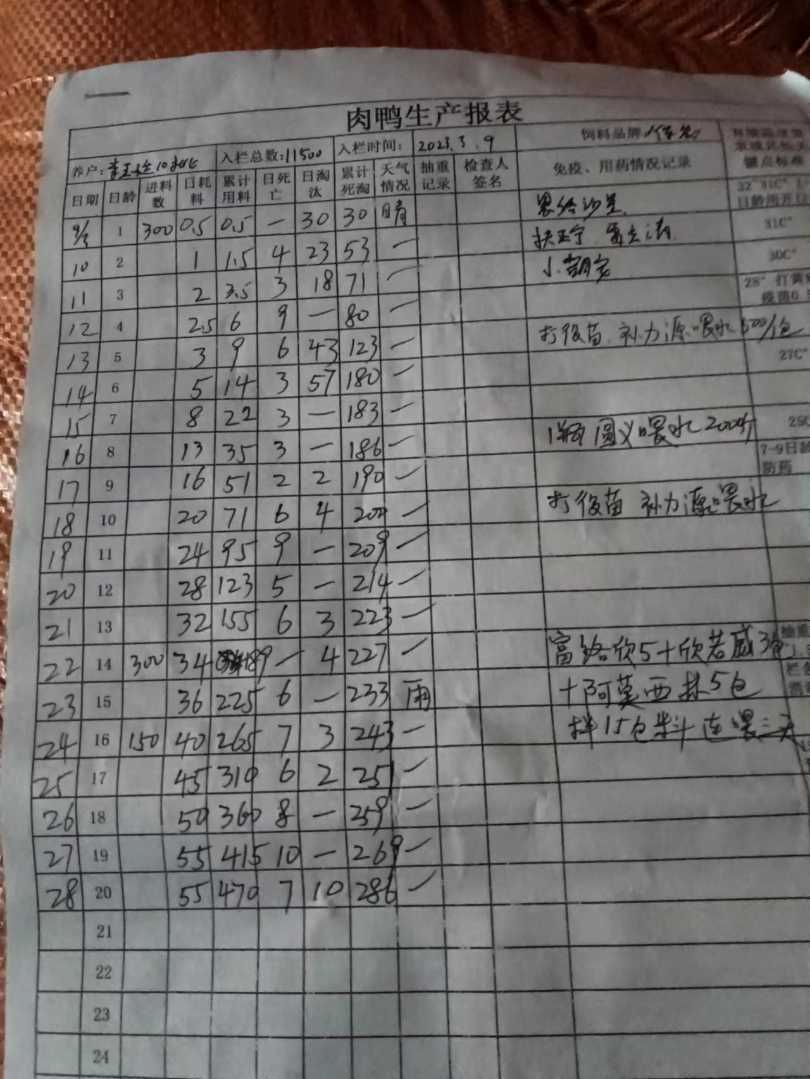 肉鸭生产报表
养户: 入栏总数:11500 入栏时间: 2023.3.9 饲料品牌
日期 日龄 进料数 日耗料 累计用料 日死亡 日淘汰 累计死淘 天气情况 抽重记录 检查人签名 免疫、用药情况记录
9/3 1 300 0.5 0.5 — 30 30 晴 31C°
10 2 1 1.5 4 23 53 — 30C°
11 3 2 3.5 3 18 71 — 28°
12 4 2.5 6 9 — 80 —
13 5 3 9 6 43 123 — 打役苗 补力源喂水 500/包 27C°
14 6 5 14 3 57 180 —
15 7 8 22 3 — 183 —
16 8 13 35 3 — 186 — 1瓶 喂水 7-9日龄
17 9 16 51 2 2 190 — 防药
18 10 20 71 6 4 200 — 打役苗 补力源喂水
19 11 24 95 9 — 209 —
20 12 28 123 5 — 214 —
21 13 32 155 6 3 223 —
22 14 300 34 189 — 4 227 — 富络欣5+欣若威3包
23 15 36 225 6 — 233 雨 +阿莫西林5包
24 16 150 40 265 7 3 243 — 拌15包料 连喂三天
25 17 45 310 6 2 251 —
26 18 50 360 8 — 259 —
27 19 55 415 10 — 269 —
28 20 55 470 7 10 286 —
21
22
23
24